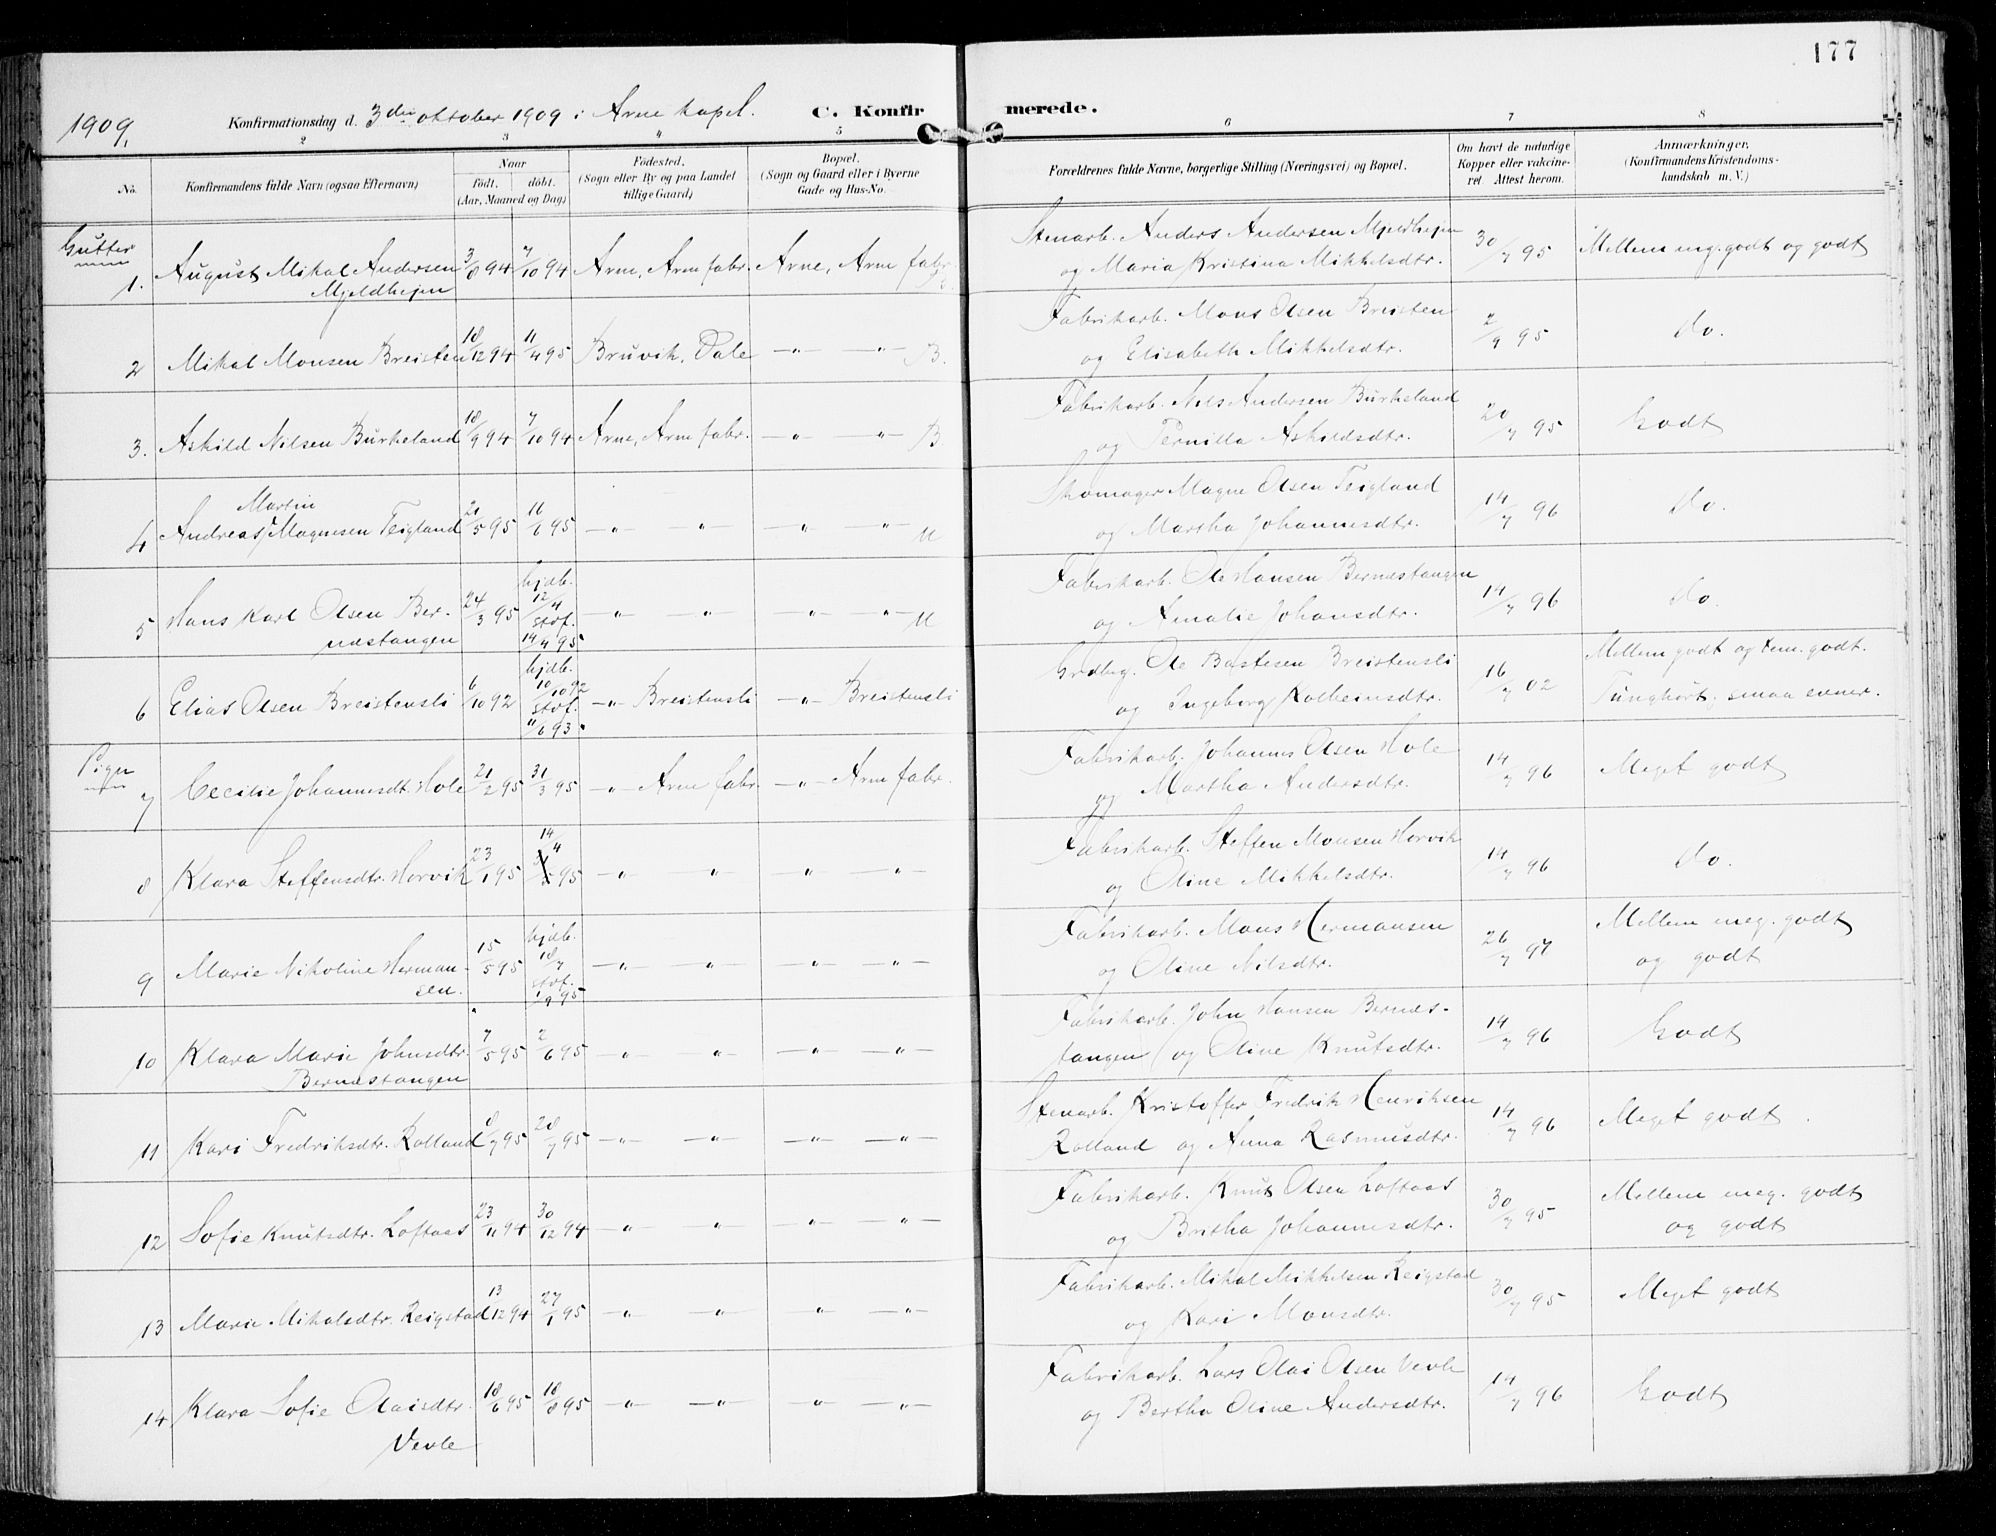 177
1909,
Konfirmationsdag d. 3die oktober 1909 i Arne kapel. C. Konfir merede.
2 3 4 5 6 7 8
No.
Konfirmandens fulde Navn (ogsaa Efternavn)
Naar
født. døbt.
(Aar, Maaned og Dag)
Fødested.
(Sogn eller By og paa Landet
tillige Gaard)
Bopæl.
(Sogn og Gaard eller i Byerne
Gade og Hus-No.
Forældrenes fulde Navne, borgerlige Stilling (Næringsvei) og Bopæl.
Om havt de naturlige
Kopper eller vakcine-
ret. Attest herom.
Anmærkninger.
(Konfirmandens Kristendoms-
kundskab m. V.)
Gutter
1. August Mikal Andersen 3/8 94 7/10 94 Arne, Arne fabr. Arne, Arne fabr.
Mjeldhejen
Stenarb. Anders Andersen Mjeldhejen
og Maria Kristina Mikkelsdtr. 30/7 95 Mellem meg. godt og godt
2 Mikal Monsen Breisten 18/12 94 11/4 95 Bruvik, Dale —"— —"— B.
Fabrikarb. Mons Olsen Breisten
og Elisabeth Mikkelsdtr. 2/9 95 do.
3. Askild Nilsen Burkeland 18/9 94 7/10 94 Arne, Arne fabr. —"— "— B
Fabrikarb. Nils Andersen Burkeland
og Pernilla Askildsdtr. 20/7 95 Godt
Martin
4 Andreas Magnesen Teigland 21/5 95 16/6 95 —"— "— —"— "— M
Skomager Magne Olsen Teigland
og Martha Johannesdtr. 14/7 96 do.
5 Hans Karl Olsen Ber-
næstangen 24/3 95 hjdb.
12/4
stof.
14/4 95 —"— —"— —"— "— M
Fabrikarb. Ole Hansen Bernæstangen
og Amalie Johansdtr. 14/7 96 do.
6 Elias Olsen Breistensli 6/10 92 hjdb.
10/10 92
stof.
11/6 93. —"— Breistensli —"— Breistensli
Grdbrg. Ole Bastesen Breistensli
og Ingeborg Kolbeinsdtr. 16/7 02 Mellem godt og tem. godt.
Tunghørt, smaa evner.
Piger
7 Cecilie Johannesdt. Hole 21/2 95 31/3 95 —"— Arne fabr. —"— Arne fabr.
Fabrikarb. Johannes Olsen Hole
og Martha Andersdtr. 14/7 96 Meget godt
8 Klara Steffensdtr. Horvik 23/1 95 14/4 95 —"— "— —"— —"—
Fabrikarb. Steffen Monsen Horvik
og Oline Mikkelsdtr. 14/7 96 do.
9 Marie Nikoline Herman-
sen. 15/5 95 hjdb.
18/7
stof.
1/9 95 —"— —"— —"— —"—
Fabrikarb. Mons Hermansen
og Oline Nilsdtr. 26/7 97 Mellem meg. godt
og godt
10 Klara Marie Johnsdtr.
Bernæstangen 7/5 95 2/6 95 —"— —"— —"— —"—
Fabrikarb. John Hansen Bernæs-
tangen og Oline Knutsdtr. 14/7 96 Godt
11 Kari Fredriksdtr. Rolland 8/7 95 28/7 95 —"— —"— —"— —"—
Stenarb. Kristoffer Fredrik Henriksen
Rolland og Anna Rasmusdtr. 14/7 96 Meget godt
12 Sofie Knutsdtr. Loftaas 23/11 94 30/12 94 —"— —"— —"— —"—
Fabrikarb. Knut Olsen Loftaas
og Britha Johannesdtr. 30/7 95 Mellem meg. godt
og godt
13 Marie Mikalsdtr. Reigstad 13/12 94 27/1 95 —"— —"— —"— —"—
Fabrikarb. Mikal Mikkelsen Reigstad
og Kari Monsdtr. 30/7 95 Meget godt
14 Klara Sofie Olaisdtr.
Vevle 18/6 95 18/8 95 —"— —"— —"— —"—
Fabrikarb. Lars Olai Olsen Vevle
og Bertha Oline Andersdtr. 14/7 96 Godt